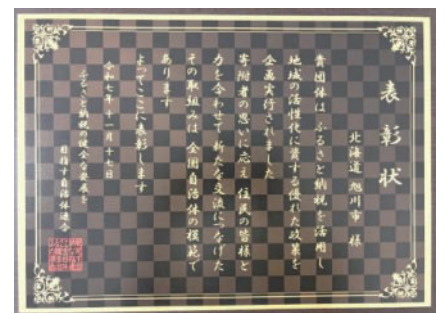 表彰状
北海道 旭川市 様
貴団体は ふるさと納税を活用し
地域の活性化に資する優れた政策を
企画実行されました
寄附者の思いに応え 住民の皆様と
力を合わせて新たな交流につなげた
その取組みは 全国自治体の模範で
あります
よってここに表彰します
令和七年十一月十七日
ふるさと納税の健全な発展を
目指す自治体連合